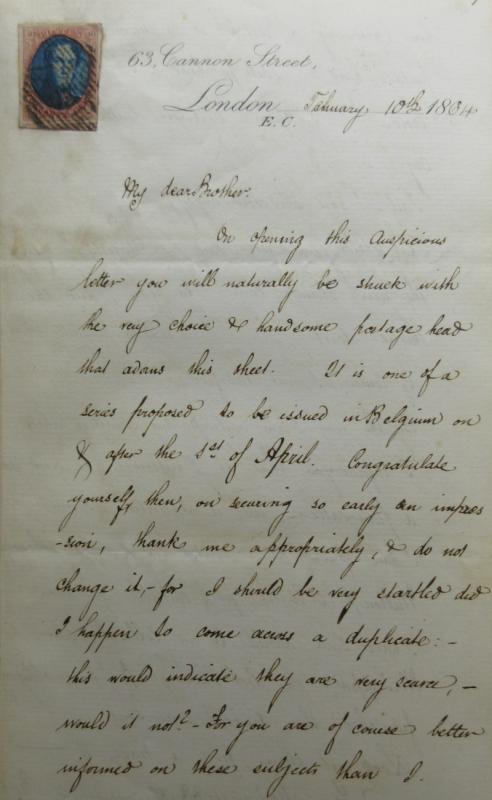 63, Cannon Street,
London February 10th 1864
E.C.
My dear Brother.
On opening this auspicious
letter you will naturally be struck with
the very choice & handsome postage head
that adorns this sheet. It is one of a
series proposed to be issued in Belgium on
& after the 1st of April. Congratulate
yourself, then, on securing so early an impres
-sion, thank me appropriately, & do not
change it, - for I should be very startled did
I happen to come across a duplicate: -
this would indicate they are very scarce, -
would it not? - For you are of course better
informed on these subjects than I.